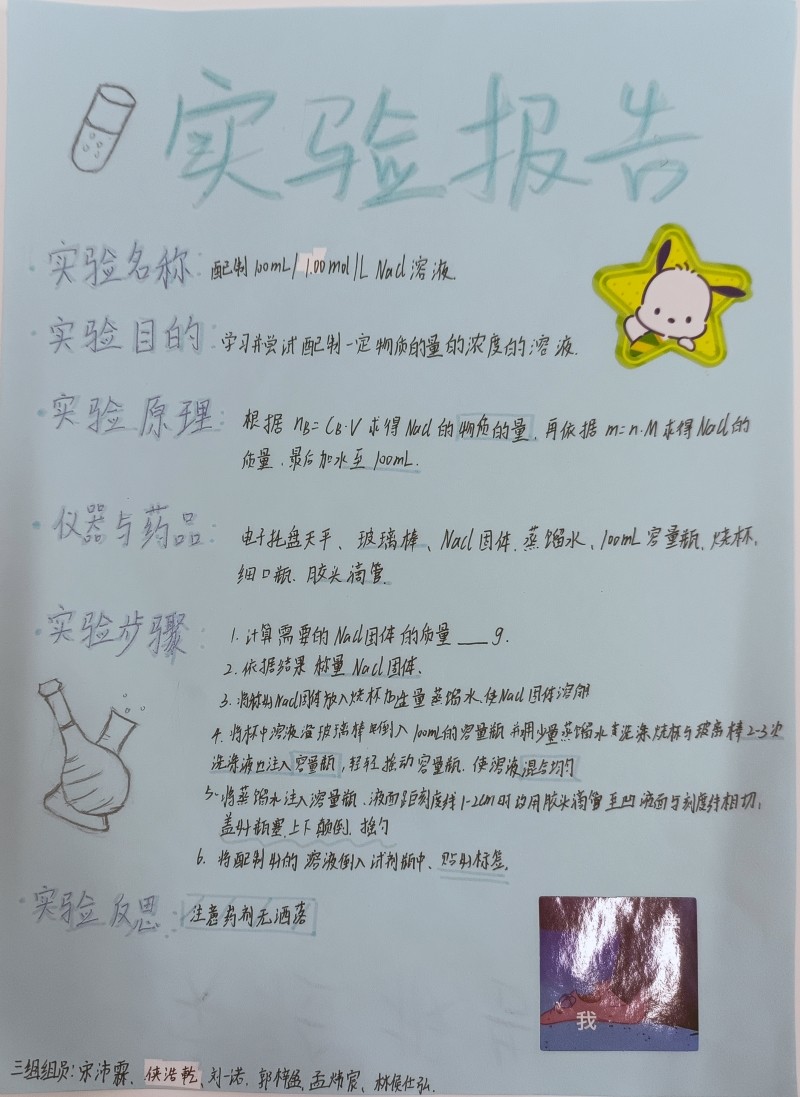 实验报告
实验名称：配制100mL/1.00mol/L Nacl溶液
实验目的：学习并尝试配制一定物质的量的浓度的溶液.
实验原理：根据 nB=CB·V 求得Nacl的物质的量，再依据 m=n·M求得Nacl的
质量、最后加水至100mL.
仪器与药品：电子托盘天平、玻璃棒、Nacl固体、蒸馏水、100mL容量瓶、烧杯、
细口瓶、胶头滴管.
实验步骤：1.计算需要的Nacl固体的质量___g.
2.依据结果称量Nacl固体.
3.将称出Nacl固体放入烧杯加适量蒸馏水，使Nacl固体溶解
4.将杯中溶液沿玻璃棒倒入100mL的容量瓶 并用少量蒸馏水洗涤烧杯与玻璃棒2-3次
洗涤液也注入容量瓶，轻轻摇动容量瓶、使溶液混合均匀
5.将蒸馏水注入容量瓶、液面距刻度线1-2cm时改用胶头滴管至凹液面与刻度线相切，
盖好瓶塞、上下颠倒、摇匀
6.将配制好的溶液倒入试剂瓶中、贴好标签.
实验反思：注意药剂无洒落
我
三组组员：宋沛霖、侠浩乾、刘一诺、郭梓、孟炜宸、林侯仕弘.